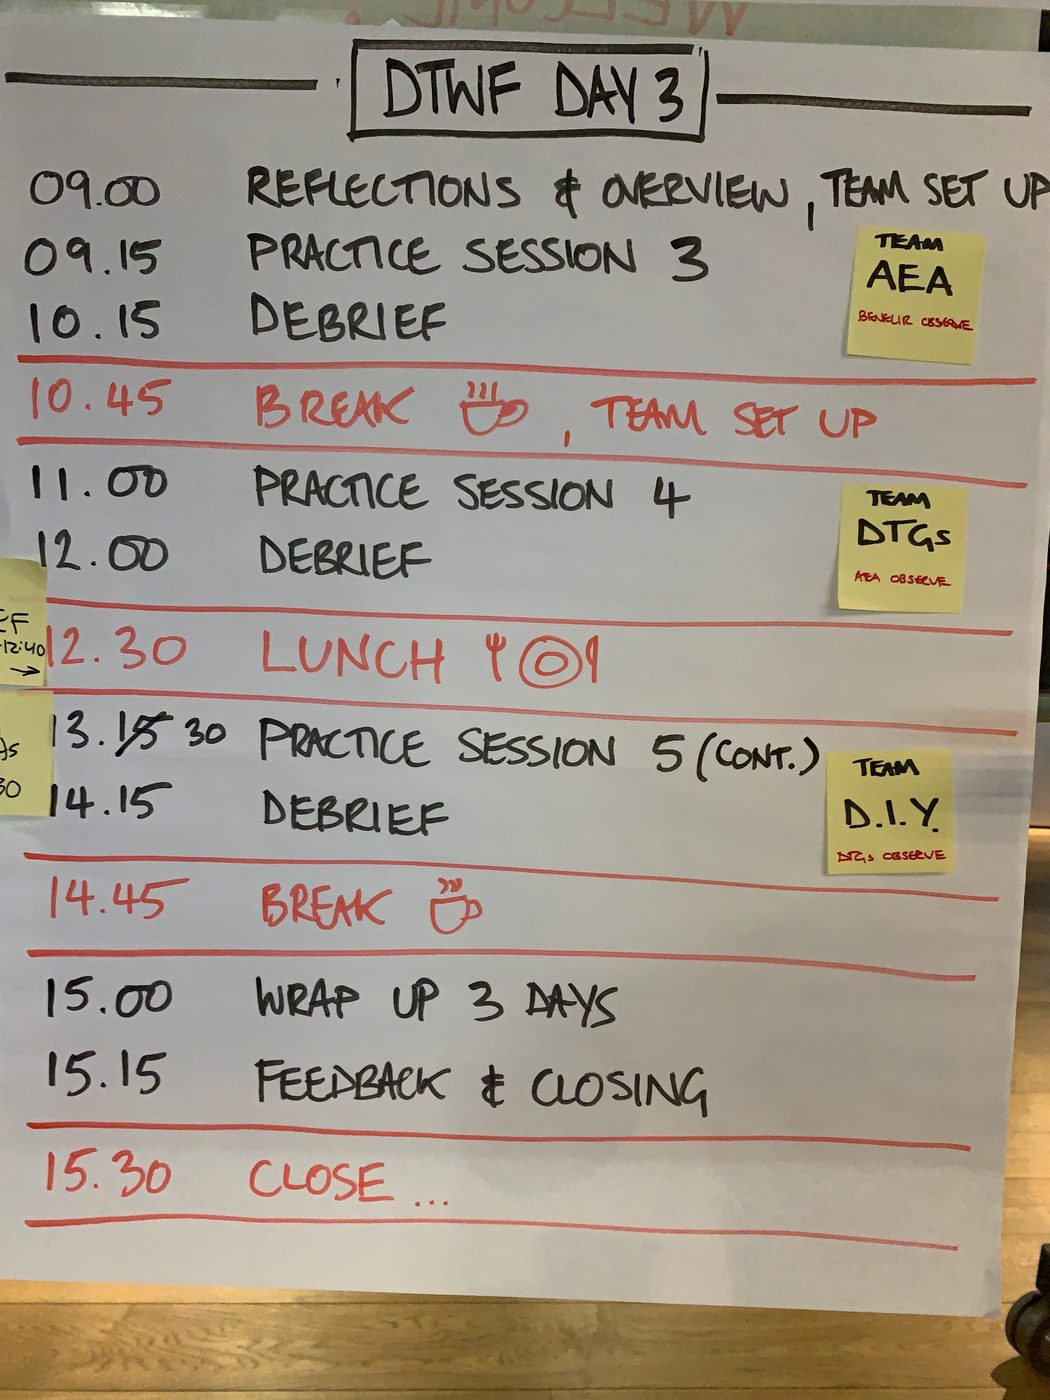 WELCOME
DTWF DAY 3
09.00 REFLECTIONS & OVERVIEW, TEAM SET UP
09.15 PRACTICE SESSION 3
TEAM
AEA
OBSERVE
10.15 DEBRIEF
10.45 BREAK , TEAM SET UP
11.00 PRACTICE SESSION 4
TEAM
DTGs
AEA OBSERVE
12.00 DEBRIEF
-12:40
12.30 LUNCH
13.15 30 PRACTICE SESSION 5 (CONT.)
TEAM
D.I.Y.
DTGs OBSERVE
14.15 DEBRIEF
14.45 BREAK
15.00 WRAP UP 3 DAYS
15.15 FEEDBACK & CLOSING
15.30 CLOSE ...